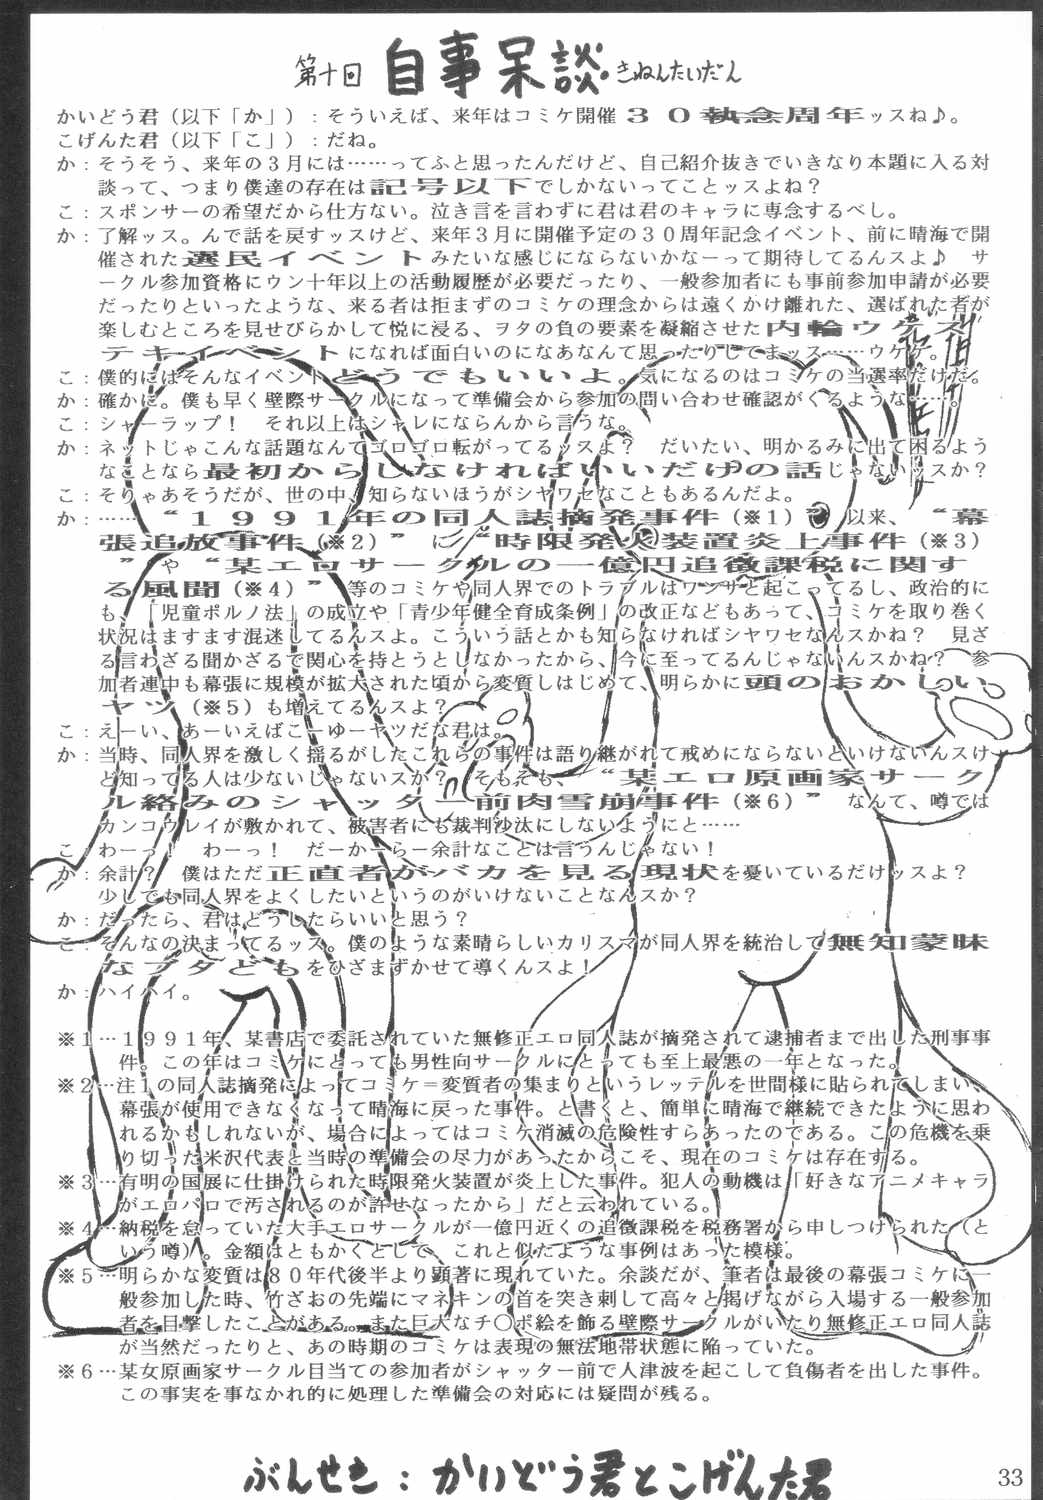 第十回 自事呆談・きねんたいだん
かいどう君（以下「か」）：そういえば、来年はコミケ開催３０執念周年ッスね♪。
こげんた君（以下「こ」）：だね。
か：そうそう、来年の３月には……ってふと思ったんだけど、自己紹介抜きでいきなり本題に入る対
談って、つまり僕達の存在は記号以下でしかないってことッスよね？
こ：スポンサーの希望だから仕方ない。泣き言を言わずに君は君のキャラに専念するべし。
か：了解ッス。んで話を戻すッスけど、来年３月に開催予定の３０周年記念イベント、前に晴海で開
催された選民イベントみたいな感じにならないかなーって期待してるんスよ♪　サ
ークル参加資格にウン十年以上の活動履歴が必要だったり、一般参加者にも事前参加申請が必要
だったりといったような、来る者は拒まずのコミケの理念からは遠くかけ離れた、選ばれた者が
楽しむところを見せびらかして悦に浸る、ヲタの負の要素を凝縮させた内輪ウケス
テキイベントになれば面白いのになあなんて思ったりしてまッス……ウケケ。
こ：僕的にはそんなイベントどうでもいいよ。気になるのはコミケの当選率だけだ。
か：確かに。僕も早く壁際サークルになって準備会から参加の問い合わせ確認がくるような……。
こ：シャーラップ！　それ以上はシャレにならんから言うな。
か：ネットじゃこんな話題なんてゴロゴロ転がってるッスよ？　だいたい、明かるみに出て困るよう
なことなら最初からしなければいいだけの話じゃないッスか？
こ：そりゃあそうだが、世の中、知らないほうがシヤワセなこともあるんだよ。
か：……“１９９１年の同人誌摘発事件（※１）”以来、“幕
張追放事件（※２）”に“時限発火装置炎上事件（※３）
”や“某エロサークルの一億円追徴課税に関す
る風聞（※４）”　等のコミケや同人界でのトラブルはワンサと起こってるし、政治的に
も、「児童ポルノ法」の成立や「青少年健全育成条例」の改正などもあって、コミケを取り巻く
状況はますます混迷してるんスよ。こういう話とかも知らなければシヤワセなんスかね？　見ざ
る言わざる聞かざるで関心を持とうとしなかったから、今に至ってるんじゃないんスかね？　参
加者連中も幕張に規模が拡大された頃から変質しはじめて、明らかに頭のおかしい
ヤツ（※５）も増えてるんスよ？
こ：えーい、あーいえばこーゆーヤツだな君は。
か：当時、同人界を激しく揺るがしたこれらの事件は語り継がれて戒めにならないといけないんスけ
ど知ってる人は少ないじゃないスか？　そもそも、“某エロ原画家サーク
ル絡みのシャッター前肉雪崩事件（※６）”　なんて、噂では
カンコウレイが敷かれて、被害者にも裁判沙汰にしないようにと……
こ：わーっ！　わーっ！　だーかーらー余計なことは言うんじゃない！
か：余計？　僕はただ正直者がバカを見る現状を憂いているだけッスよ？
少しでも同人界をよくしたいというのがいけないことなんスか？
か：だったら、君はどうしたらいいと思う？
こ：そんなの決まってるッス。僕のような素晴らしいカリスマが同人界を統治して無知蒙昧
なブタどもをひざまずかせて導くんスよ！
か：ハイハイ。
※１…１９９１年、某書店で委託されていた無修正エロ同人誌が摘発されて逮捕者まで出した刑事事
件。この年はコミケにとっても男性向サークルにとっても至上最悪の一年となった。
※２…注１の同人誌摘発によってコミケ＝変質者の集まりというレッテルを世間様に貼られてしまい、
幕張が使用できなくなって晴海に戻った事件。と書くと、簡単に晴海で継続できたように思わ
れるかもしれないが、場合によってはコミケ消滅の危険性すらあったのである。この危機を乗
り切った米沢代表と当時の準備会の尽力があったからこそ、現在のコミケは存在する。
※３…有明の国展に仕掛けられた時限発火装置が炎上した事件。犯人の動機は「好きなアニメキャラ
がエロパロで汚されるのが許せなかったから」だと云われている。
※４…納税を怠っていた大手エロサークルが一億円近くの追徴課税を税務署から申しつけられた（と
いう噂）。金額はともかくとして、これと似たような事例はあった模様。
※５…明らかな変質は８０年代後半より顕著に現れていた。余談だが、筆者は最後の幕張コミケに一
般参加した時、竹ざおの先端にマネキンの首を突き刺して高々と掲げながら入場する一般参加
者を目撃したことがある。また巨大なチ〇ポ絵を飾る壁際サークルがいたり無修正エロ同人誌
が当然だったりと、あの時期のコミケは表現の無法地帯状態に陥っていた。
※６…某女原画家サークル目当ての参加者がシャッター前で人津波を起こして負傷者を出した事件。
この事実を事なかれ的に処理した準備会の対応には疑問が残る。
ぶんせき：かいどう君とこげんた君
33